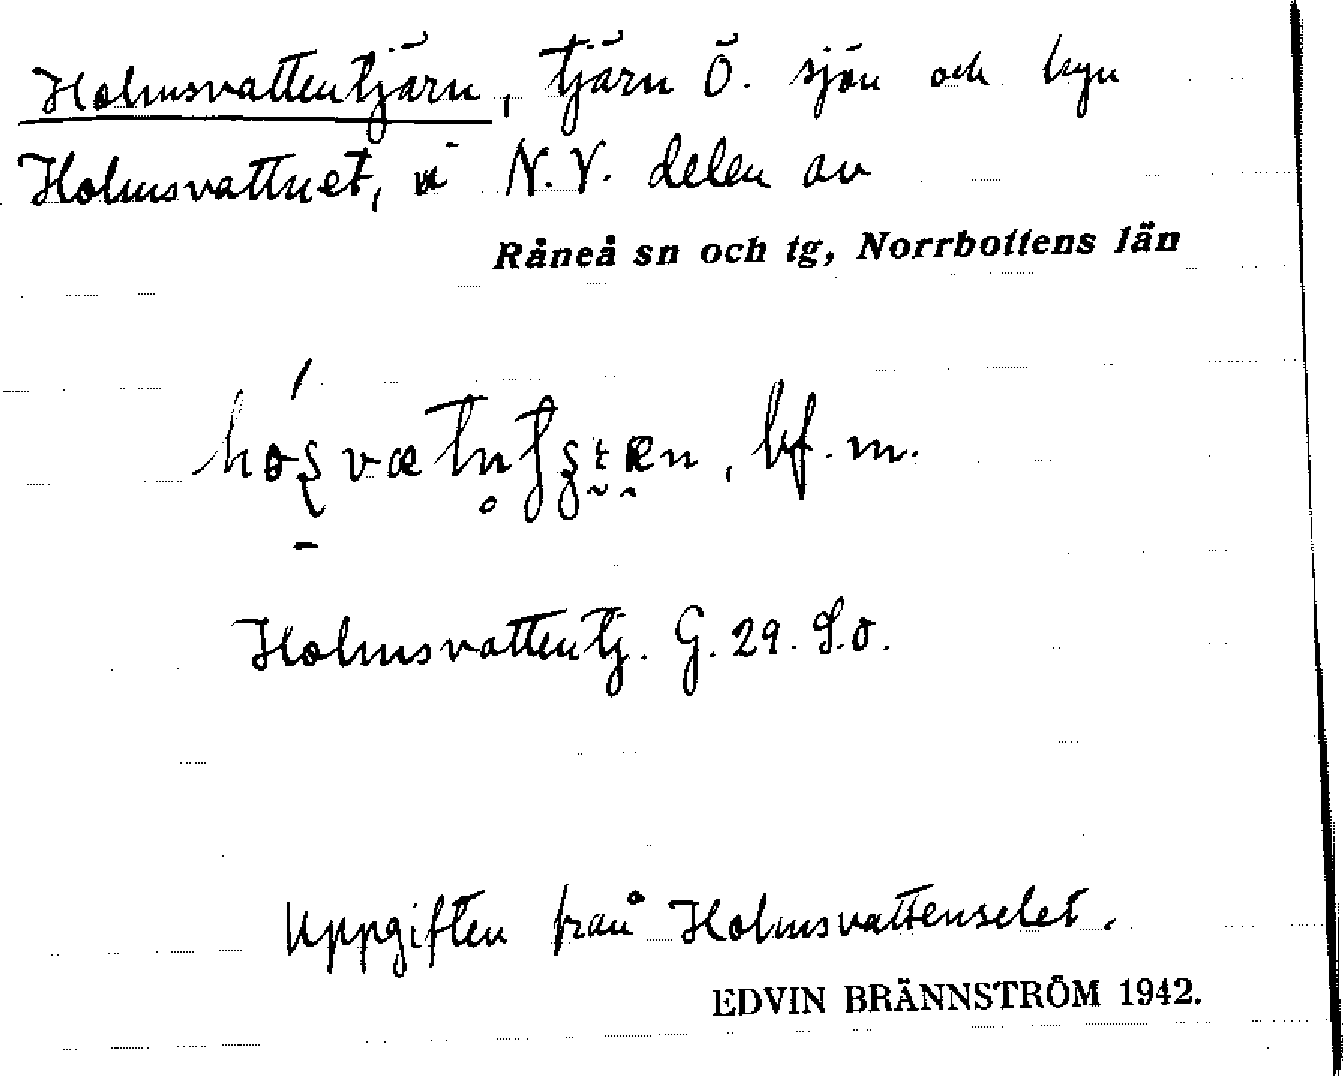 Holmsvattentjärn, tjärn Ö. sjön och byn
Holmsvattnet, i N.V. delen av
Råneå sn och tg, Norrbottens län
bf. m.
Holmsvattentj. G. 29. S.O.
Uppgiften från Holmsvattenselet.
EDVIN BRÄNNSTRÖM 1942.